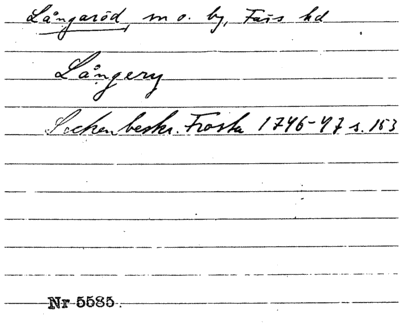 Långaröd, m o. by, Färs hd
Långery
Sockenbeskr. Frosta 1746-47 s. 153
Nr 5585.